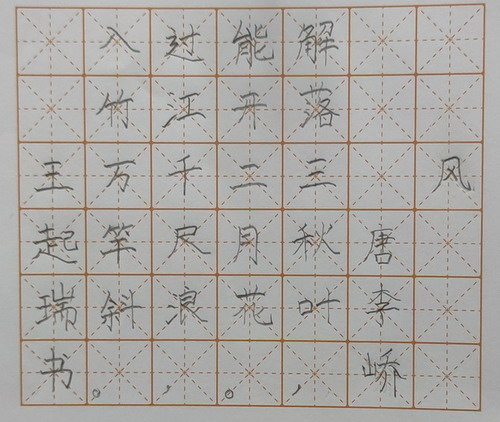 风
唐李峤
解落三秋叶，
能开二月花。
过江千尺浪，
入竹万竿斜。
王起瑞书